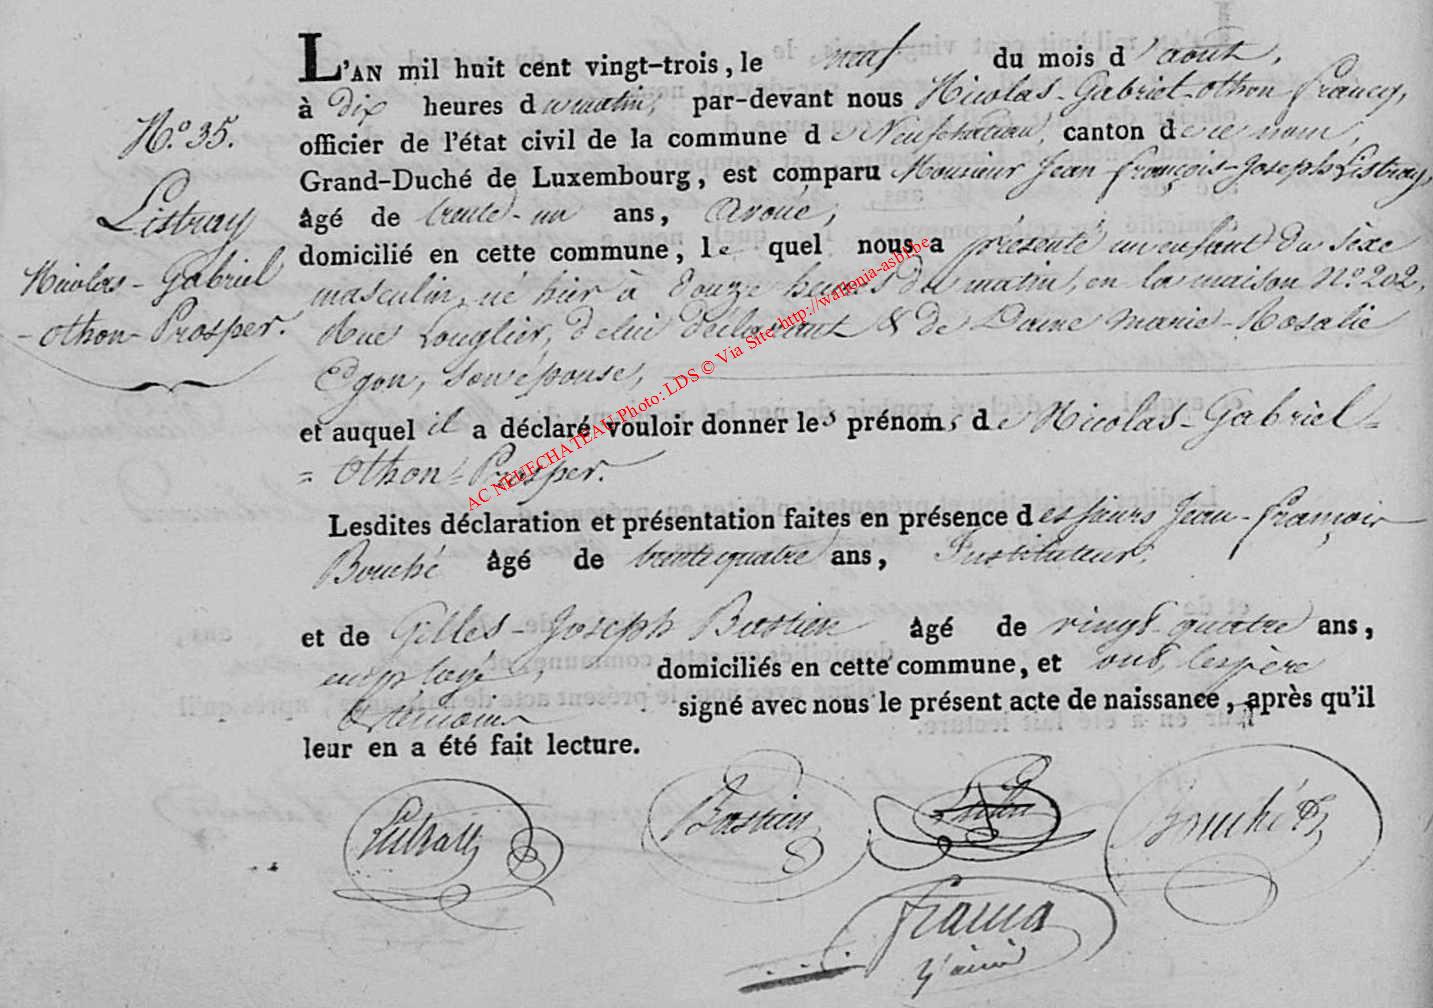 N.o 35.
Listray
Nicolas-Gabriel
-othon-Prosper.
L'AN mil huit cent vingt-trois, le neuf du mois d'aout,
à Dix heures du matin, par-devant nous Nicolas-Gabriel-othon Francq,
officier de l'état civil de la commune de Neufchateau, canton de ce nom,
Grand-Duché de Luxembourg, est comparu Monsieur Jean françois-Joseph Listray,
âgé de trente-un ans, avoué,
domicilié en cette commune, lequel nous a présenté un enfant du sèxe
masculin, né hier à douze heures du matin, en la maison N.o 202,
Rue Longlier, de lui déclarant & de Dame Marie-Rosalie
Egon, son épouse,
et auquel il a déclaré vouloir donner les prénoms de Nicolas-Gabriel=
= Othon-Prosper.
Lesdites déclaration et présentation faites en présence des sieurs Jean-françois
Bouché âgé de trente quatre ans, Instituteur,
et de Gilles-Joseph Bastien âgé de vingt-quatre ans,
employé, domiciliés en cette commune, et ont, les père
& témoins signé avec nous le présent acte de naissance, après qu'il
leur en a été fait lecture.
Bastien
Bouché
AC NEUFCHATEAU Photo: LDS © Via Site: http://wallonia-asbl.be